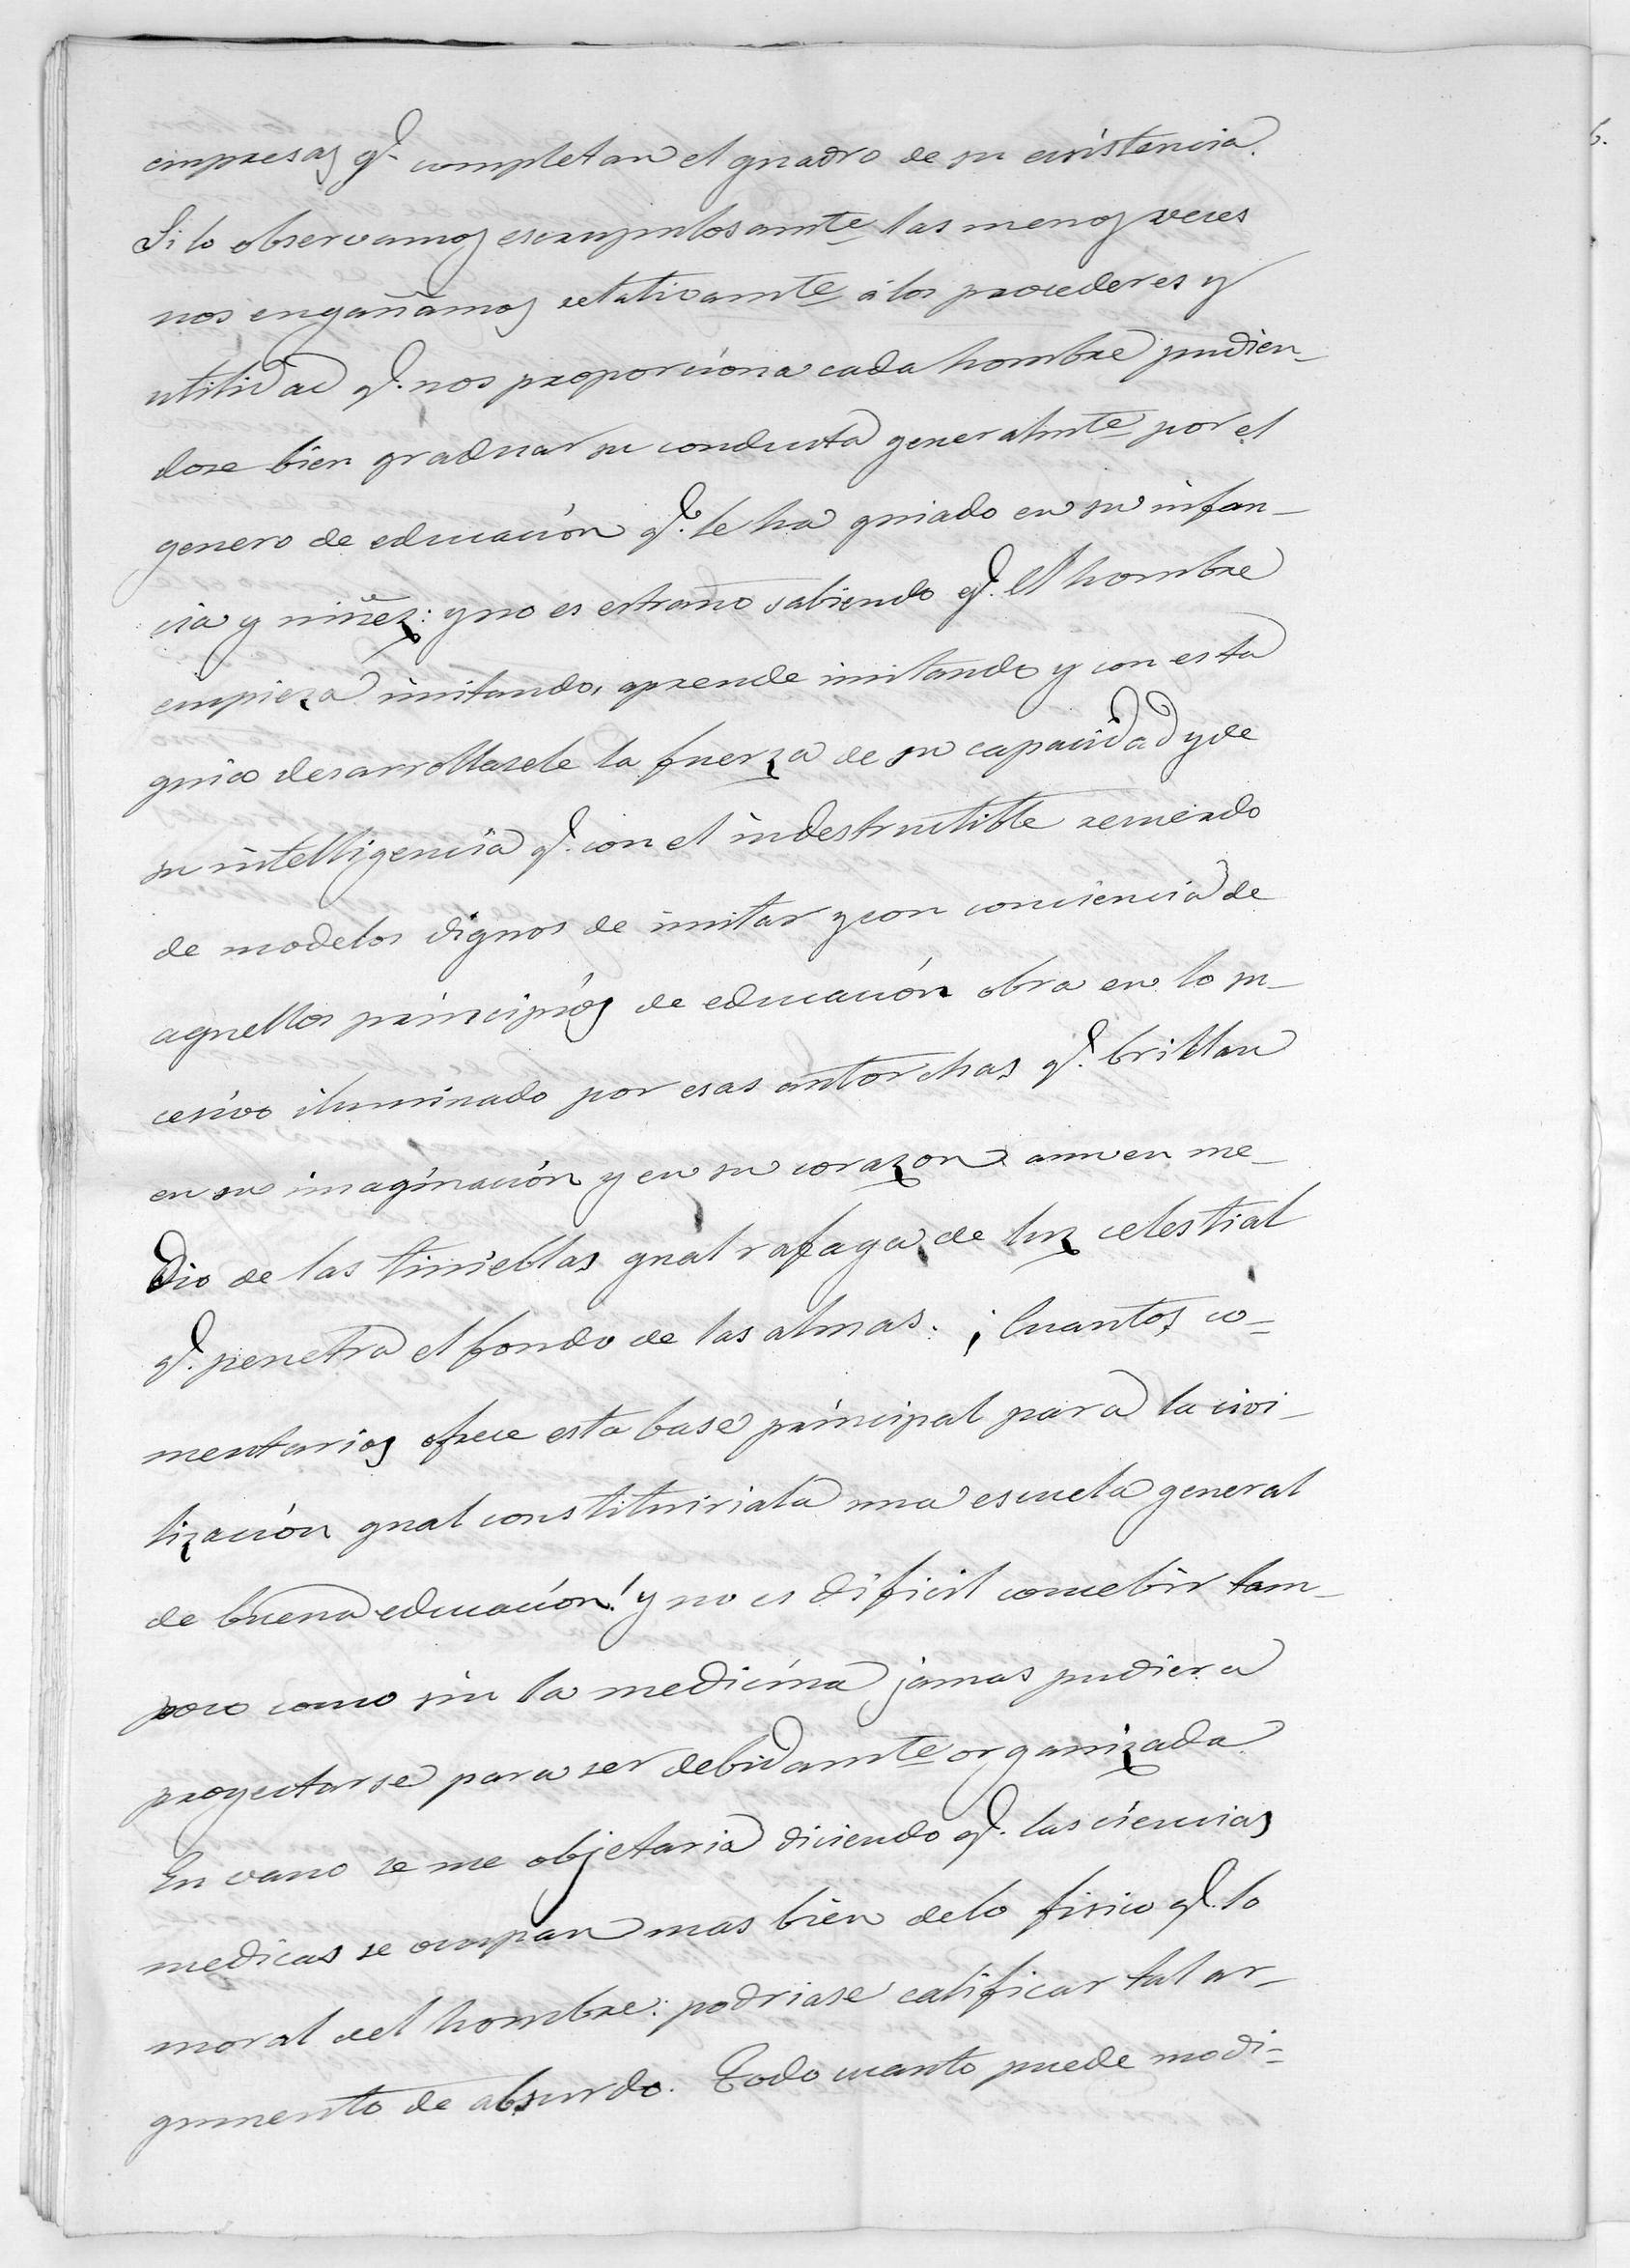 empresas q.e completan el quadro de su existencia.
Si lo observamos escrupulosamte las menos veces
nos engañamos relativamte á los procederes y
utilidad q.e nos proporciona cada hombre pudien-
dose bien graduar su conducta generalmte por el
genero de educación q.e le ha guiado en su infan-
cia y niñez: y no es estraño sabiendo q.e el hombre
empieza imitando, aprende imitando y con esta
guia desarrollasele la fuerza de su capacidad y de
su intelligencia q.e con el indestructible recuerdo
de modelos dignos de imitar y con conciencia de
aquellos principios de educación obra en lo su-
cesivo iluminado por esas antorchas q.e brillan
en su imaginación y en su corazon aun en me-
dio de las tinieblas qual rafaga de luz celestial
q.e penetra el fondo de las almas. ¡Cuantos co-
mentarios ofrece esta base principal para la civi-
lización qual constituiriala una escuela general
de buena educación! y no es dificil concebir tam-
poco como sin la medicina jamas pudiera
proyectarse para ser debidamte organizada.
En vano se me objetaria diciendo q.e las ciencias
medicas se ocupan mas bien de lo fisico q.e lo
moral del hombre: podriase calificar tal ar-
gumento de absurdo. Todo cuanto puede modi-
6.